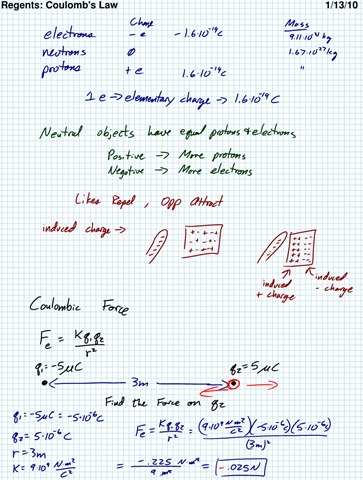 Regents: Coulomb's Law 1/13/10
Charge Mass
electrons -e -1.6·10⁻¹⁹C 9.11·10⁻³¹kg
neutrons ∅ 1.67·10⁻²⁷kg
protons +e 1.6·10⁻¹⁹C "
1 e → elementary charge → 1.6·10⁻¹⁹C
Neutral objects have equal protons & electrons
Positive → More protons
Negative → More electrons
Likes Repel, Opp Attract
induced charge →
induced + charge
induced - charge
Coulombic Force
Fe = Kq₁q₂/r²
q₁=-5μC q₂=5μC
3m
Find the Force on q₂
q₁=-5μC = -5·10⁻⁶C
q₂=5·10⁻⁶C
r=3m
K=9·10⁹ Nm²/C²
Fe = Kq₁q₂/r² = (9·10⁹ Nm²/C²)(-5·10⁻⁶C)(5·10⁻⁶C)/(3m)²
= -.225 N·m²/9 m² = -.025N